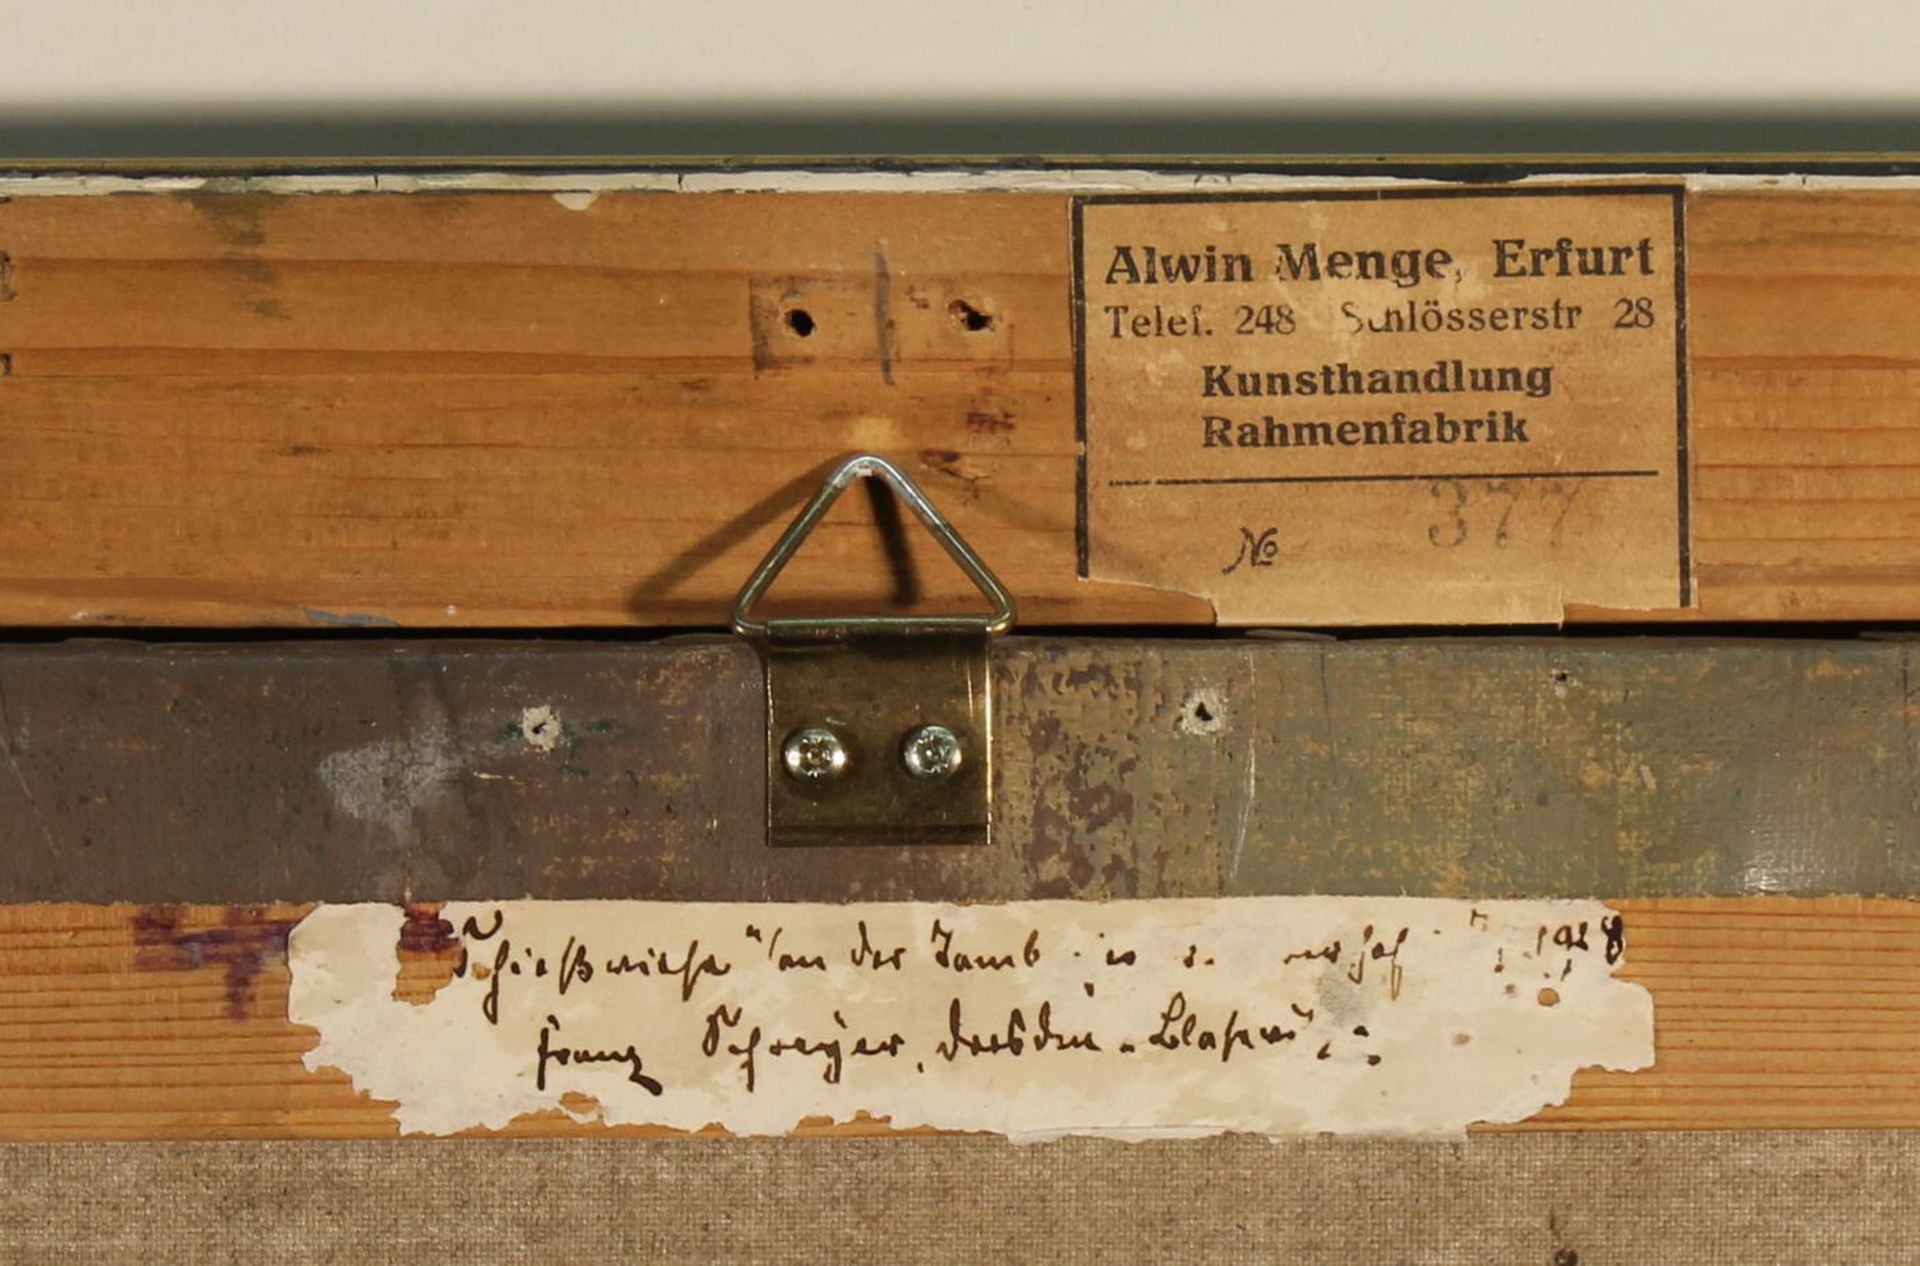 Alwin Menge, Erfurt
Telef. 248 Schlösserstr 28
Kunsthandlung
Rahmenfabrik
No 377
Schießwiese" an der 1928
Franz Schreyer, Dresden-Blasewi